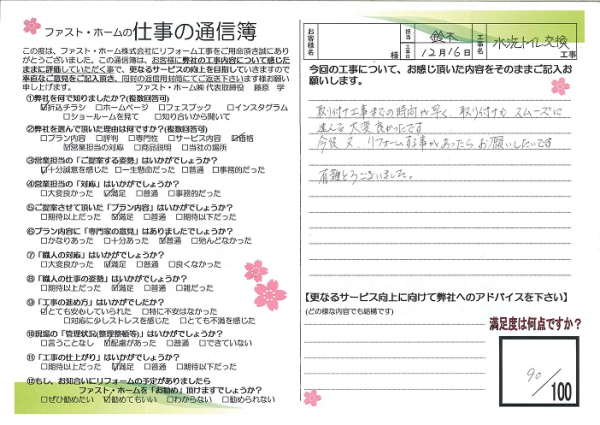 ファスト・ホームの仕事の通信簿
この度は、ファスト・ホーム株式会社にリフォーム工事をご用命頂き誠にあり
がとうございました。この通信簿は、お客様に弊社の工事内容について感じた
ままに評価していただく事で、更なるサービスの向上を目指していきますので
率直なご意見をご記入頂き、同封の返信用封筒にてご返送下さいます様お願い
申し上げます。 ファスト・ホーム㈱ 代表取締役 藤原 学
①弊社を何で知りましたか?(複数回答可)
☑折込チラシ □ホームページ □フェスブック □インスタグラム
□ショールームを見て □知り合いから聞いて
②弊社を選んで頂いた理由は何ですか?(複数回答可)
□プラン内容 □評判 □専門性 □サービス内容 ☑価格
☑営業担当の対応 □商品説明 □当社の場所
③営業担当の「ご提案する姿勢」はいかがでしょうか?
☑十分誠意を感じた □一生懸命だった □普通 □事務的だった
④営業担当の「対応」はいかがでしょうか?
□大変良かった ☑満足 □普通 □事務的だった
⑤ご提案させて頂いた「プラン内容」はいかがでしょうか?
□期待以上だった ☑満足 □普通 □期待以下だった
⑥プラン内容に「専門家の意見」はありましたでしょうか?
□かなりあった □十分あった ☑普通 □殆んどなかった
⑦「職人の対応」はいかがでしょうか?
□大変良かった ☑満足 □普通 □良くなかった
⑧「職人の仕事の姿勢」はいかがでしょうか?
□期待以上だった ☑満足 □普通 □雑だった
⑨「工事の進め方」はいかがでしたか?
☑とても安心していられた □特に不安はなかった
□対応に少しストレスを感じた □とても不満を感じた
⑩現場の「管理状況(整理整頓等)」はいかがでしたか?
□言うことなし ☑配慮があった □普通 □できていない
⑪「工事の仕上がり」はいかがでしたか?
□期待以上だった ☑満足 □普通 □期待以下だった
⑫もし、お知合いにリフォームの予定がありましたら
ファスト・ホームを「お勧め」頂けますでしょうか?
□ぜひ勧めたい ☑勧めてもいい □わからない □勧められない
お客様名 様
担当 鈴木
工事日 12月16日
工事名 水洗トイレ交換 工事
今回の工事について、お感じ頂いた内容をそのままご記入お
願いします。
取り付け工事までの時間が早く、取り付けも スムーズに
進み 大変良かったです
今後又、リフォームする事があったらお願いしたいです
有難とうございました。
【更なるサービス向上に向けて弊社へのアドバイスを下さい】
(どの様な内容でも結構です)
満足度は何点ですか?
90/100